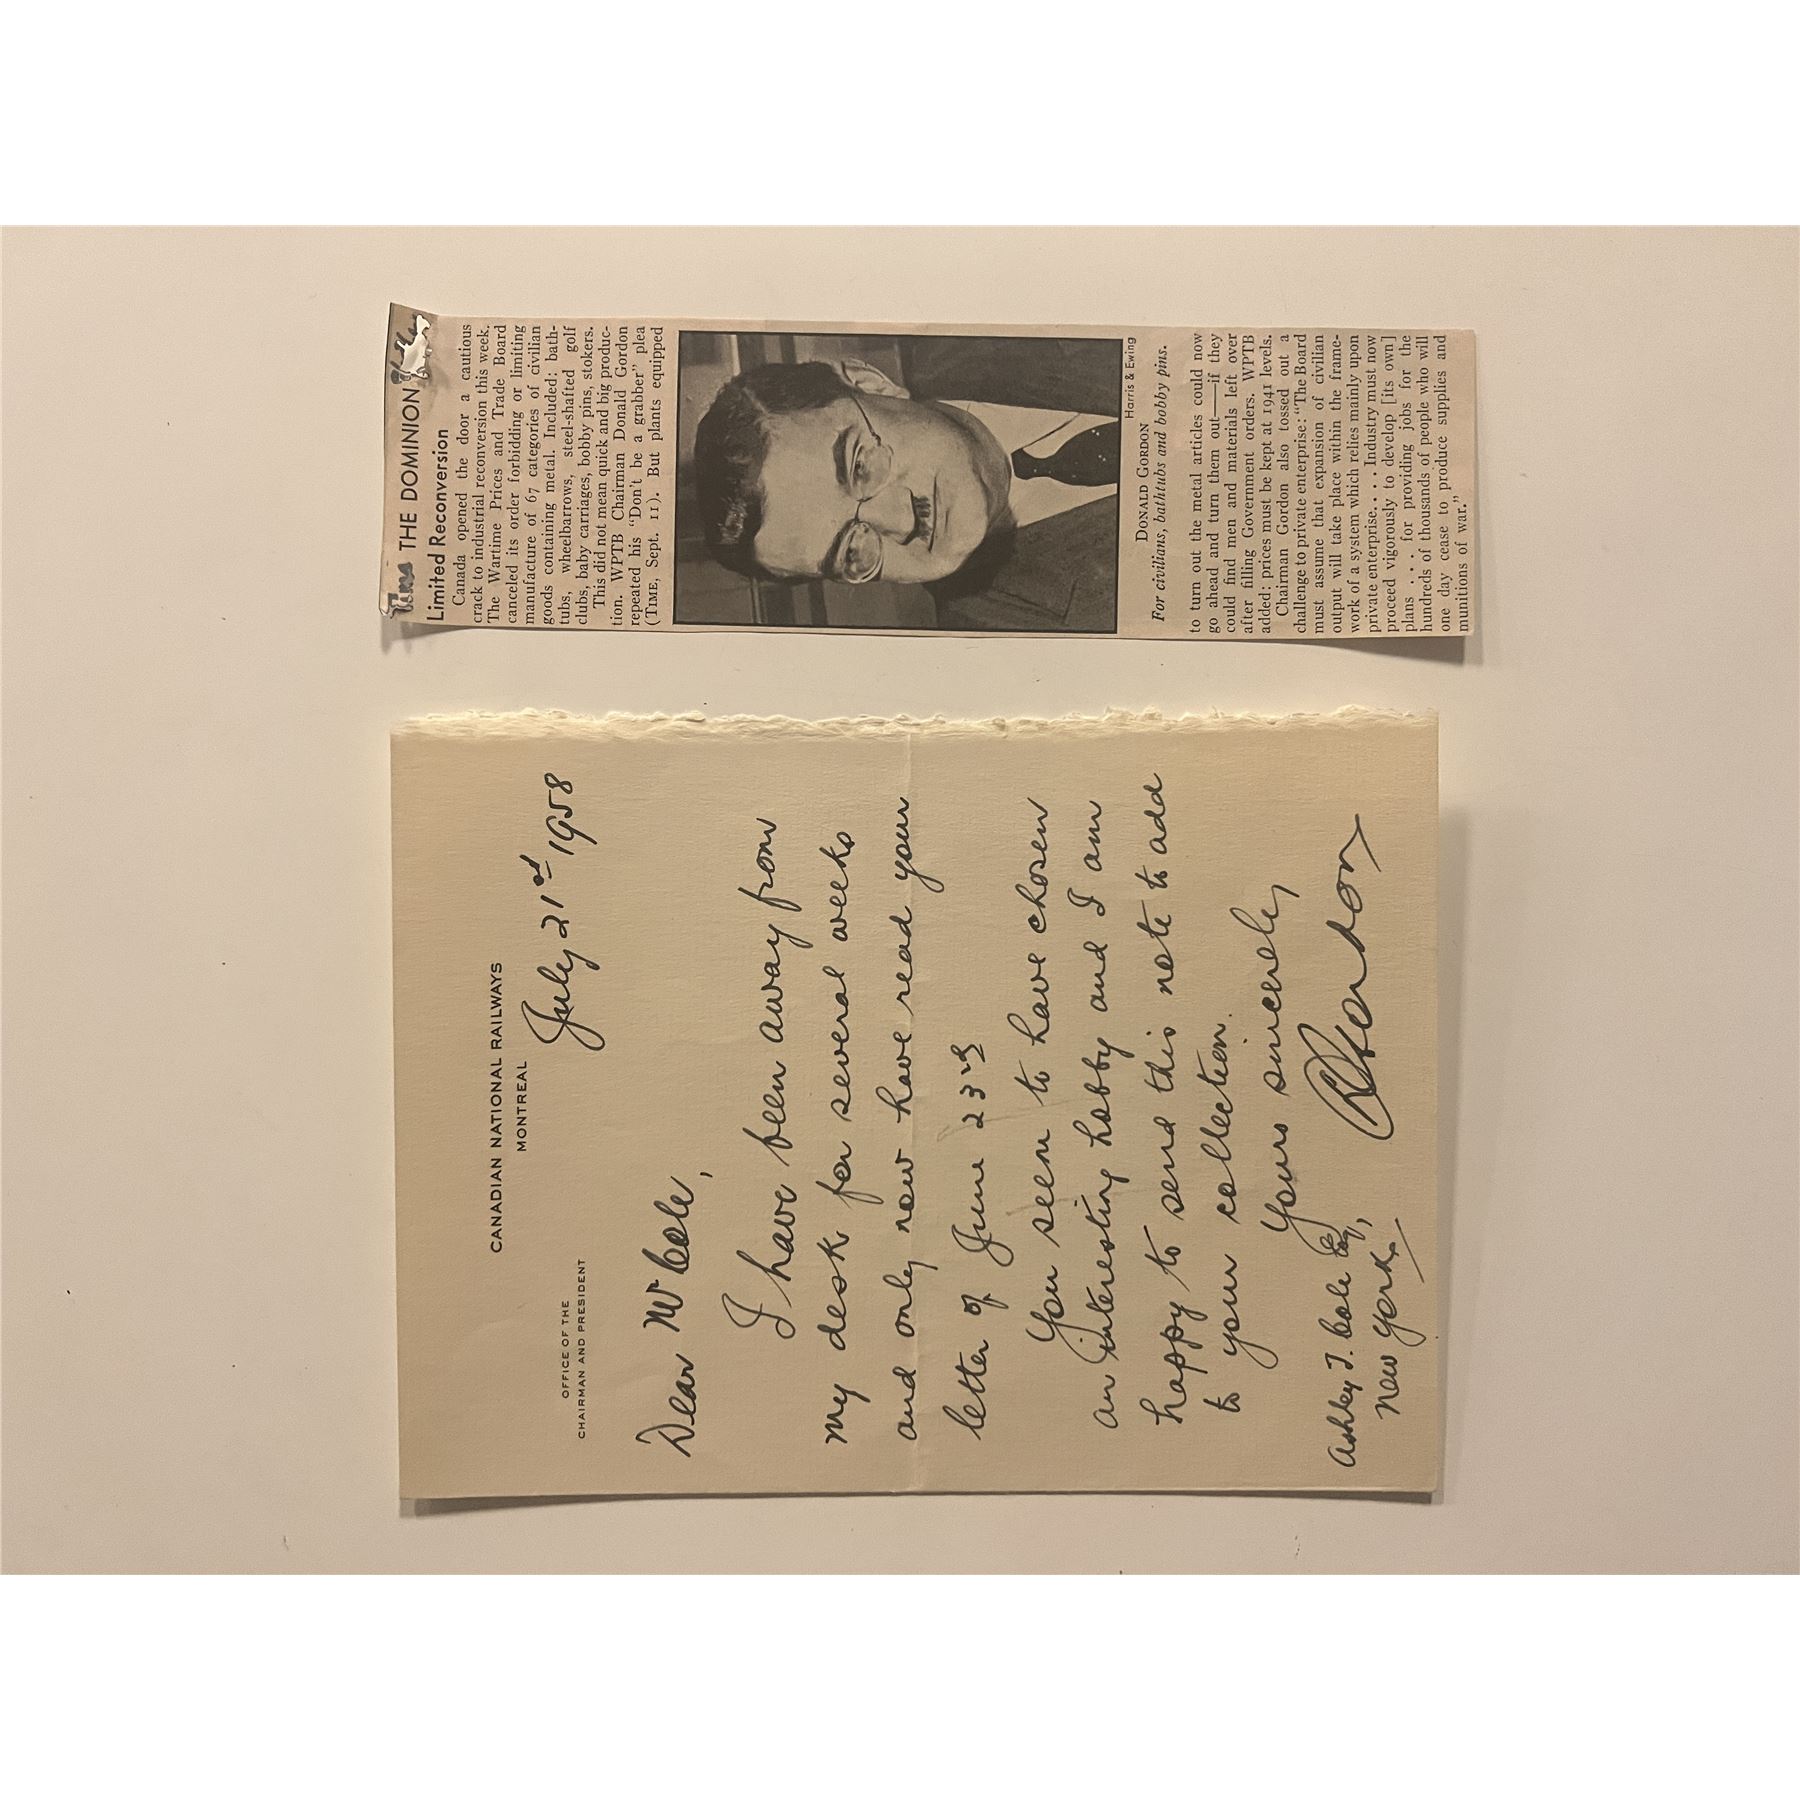 CANADIAN NATIONAL RAILWAYS
MONTREAL
OFFICE OF THE
CHAIRMAN AND PRESIDENT
July 21st 1958
Dear Mr Cole,
I have been away from
my desk for several weeks
and only now have read your
letter of June 23rd
You seem to have chosen
an interesting hobby and I am
happy to send this note to add
to your collection.
Yours sincerely,
DGordon
Ashley T. Cole Esq,
New York.
THE DOMINION
Limited Reconversion
Canada opened the door a cautious
crack to industrial reconversion this week.
The Wartime Prices and Trade Board
canceled its order forbidding or limiting
manufacture of 67 categories of civilian
goods containing metal. Included: bath-
tubs, wheelbarrows, steel-shafted golf
clubs, baby carriages, bobby pins, stokers.
This did not mean quick and big produc-
tion. WPTB Chairman Donald Gordon
repeated his "Don't be a grabber" plea
(TIME, Sept. 11). But plants equipped
Harris & Ewing
DONALD GORDON
For civilians, bathtubs and bobby pins.
to turn out the metal articles could now
go ahead and turn them out—if they
could find men and materials left over
after filling Government orders. WPTB
added: prices must be kept at 1941 levels.
Chairman Gordon also tossed out a
challenge to private enterprise: "The Board
must assume that expansion of civilian
output will take place within the frame-
work of a system which relies mainly upon
private enterprise. . . . Industry must now
proceed vigorously to develop [its own]
plans . . . for providing jobs for the
hundreds of thousands of people who will
one day cease to produce supplies and
munitions of war."